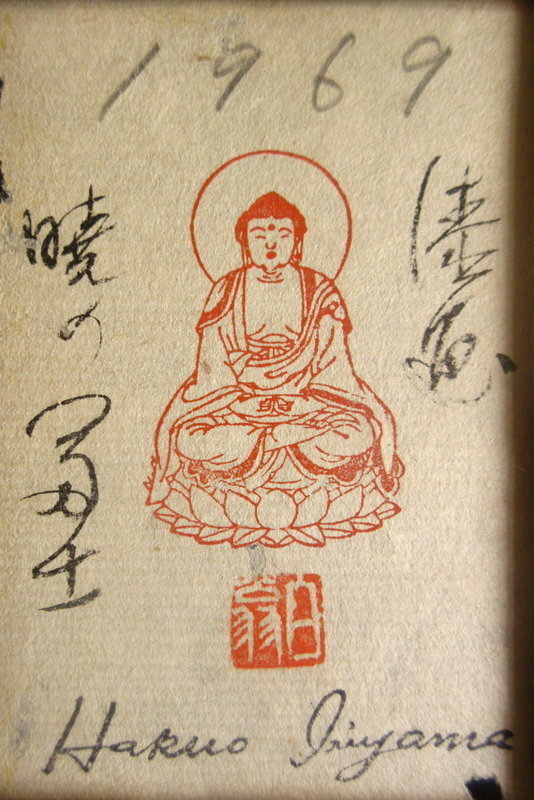 1969
暁の
冨士
白翁
Hakuo Iriyama